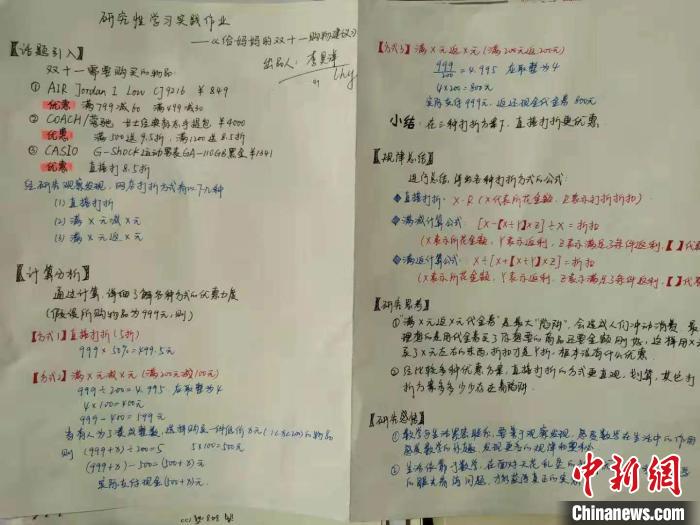 研究性学习实践作业
——《给妈妈的双十一购物建议》
出品人：李昊
【话题引入】
双十一需要购买的物品：
① AIR Jordan 1 Low CJ9216 ¥849
优惠 满799减60 满499减30
② COACH/蔻驰 手提包 ¥4000
优惠 满500送9.5折，满1200送8.5折
③ CASIO G-SHOCK运动男表GA-110GB黑金 ¥1341
优惠 直接打8.5折
经研究观察发现，网店打折方式有以下几种
(1) 直接打折
(2) 满X元减X元
(3) 满X元返X元
【计算分析】
通过计算，详细了解各种方式的优惠力度
(假设所购物品为999元，则)
【方式1】直接打折 (5折)
999×50%=499.5元
【方式2】满X元减X元 (满200元减100元)
999÷200=4.995 在取整为4
4×100=400元
999-400=599元
若有人为了凑成整数，选择购买一件低价为元 的物品
则 (999+x)÷200=5 5×100=500元
(999+x)-500=(500+x)元
实际支付现金(500+x)元
【方式3】满X元返X元 (满200元返200元)
999/200=4.995 在取整为4
4×200=800元
实际支付999元，返还现金代金券800元
小结：在三种打折方案下，直接打折更优惠
【规律总结】
进行总结，得出各种打折方式的公式：
◆直接打折：X·R (X代表所花金额，R表示打折折扣)
◆满减计算公式：[X-【X÷Y】×Z]÷X=折扣
(X表示所花金额，Y表示返利，Z表示满足Y条件返利，【】代表
◆满返计算公式：X÷[X+【X÷Y】×Z]=折扣
(X表示所花金额，Y表示返利，Z表示满足Y条件返利，【】代表
【研究思考】
①“满X元返X元代金券”是最大“陷阱”，会造成人们冲动消费，最
理想的是用代金券买了想要的商品还要金额刚好，这样用X元
买了X元左右的东西，折扣才是Y折，根本没有什么优惠。
② 经比较多种优惠方案，直接打折的方式更直观，划算，其它打
折方案多多少少存在着陷阱。
【研究感悟】
① 数学与生活紧密联系，要善于观察发现，感受数学在生活中的作用
感受数学的乐趣，发现更多的规律和奥秘
② 生活依靠于数学，在面对天花乱坠的
中新网
WWW.CHINANEWS.COM